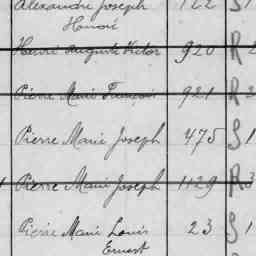 Alexandre Joseph 122 S 1
Honoré
Henri Auguste Victor 920 R 2
Pierre Marie François 921 R 2
Pierre Marie Joseph 475 S 1
Pierre Marie Joseph 1129 R 3
Pierre Marie Louis 23 S 1
Ernest